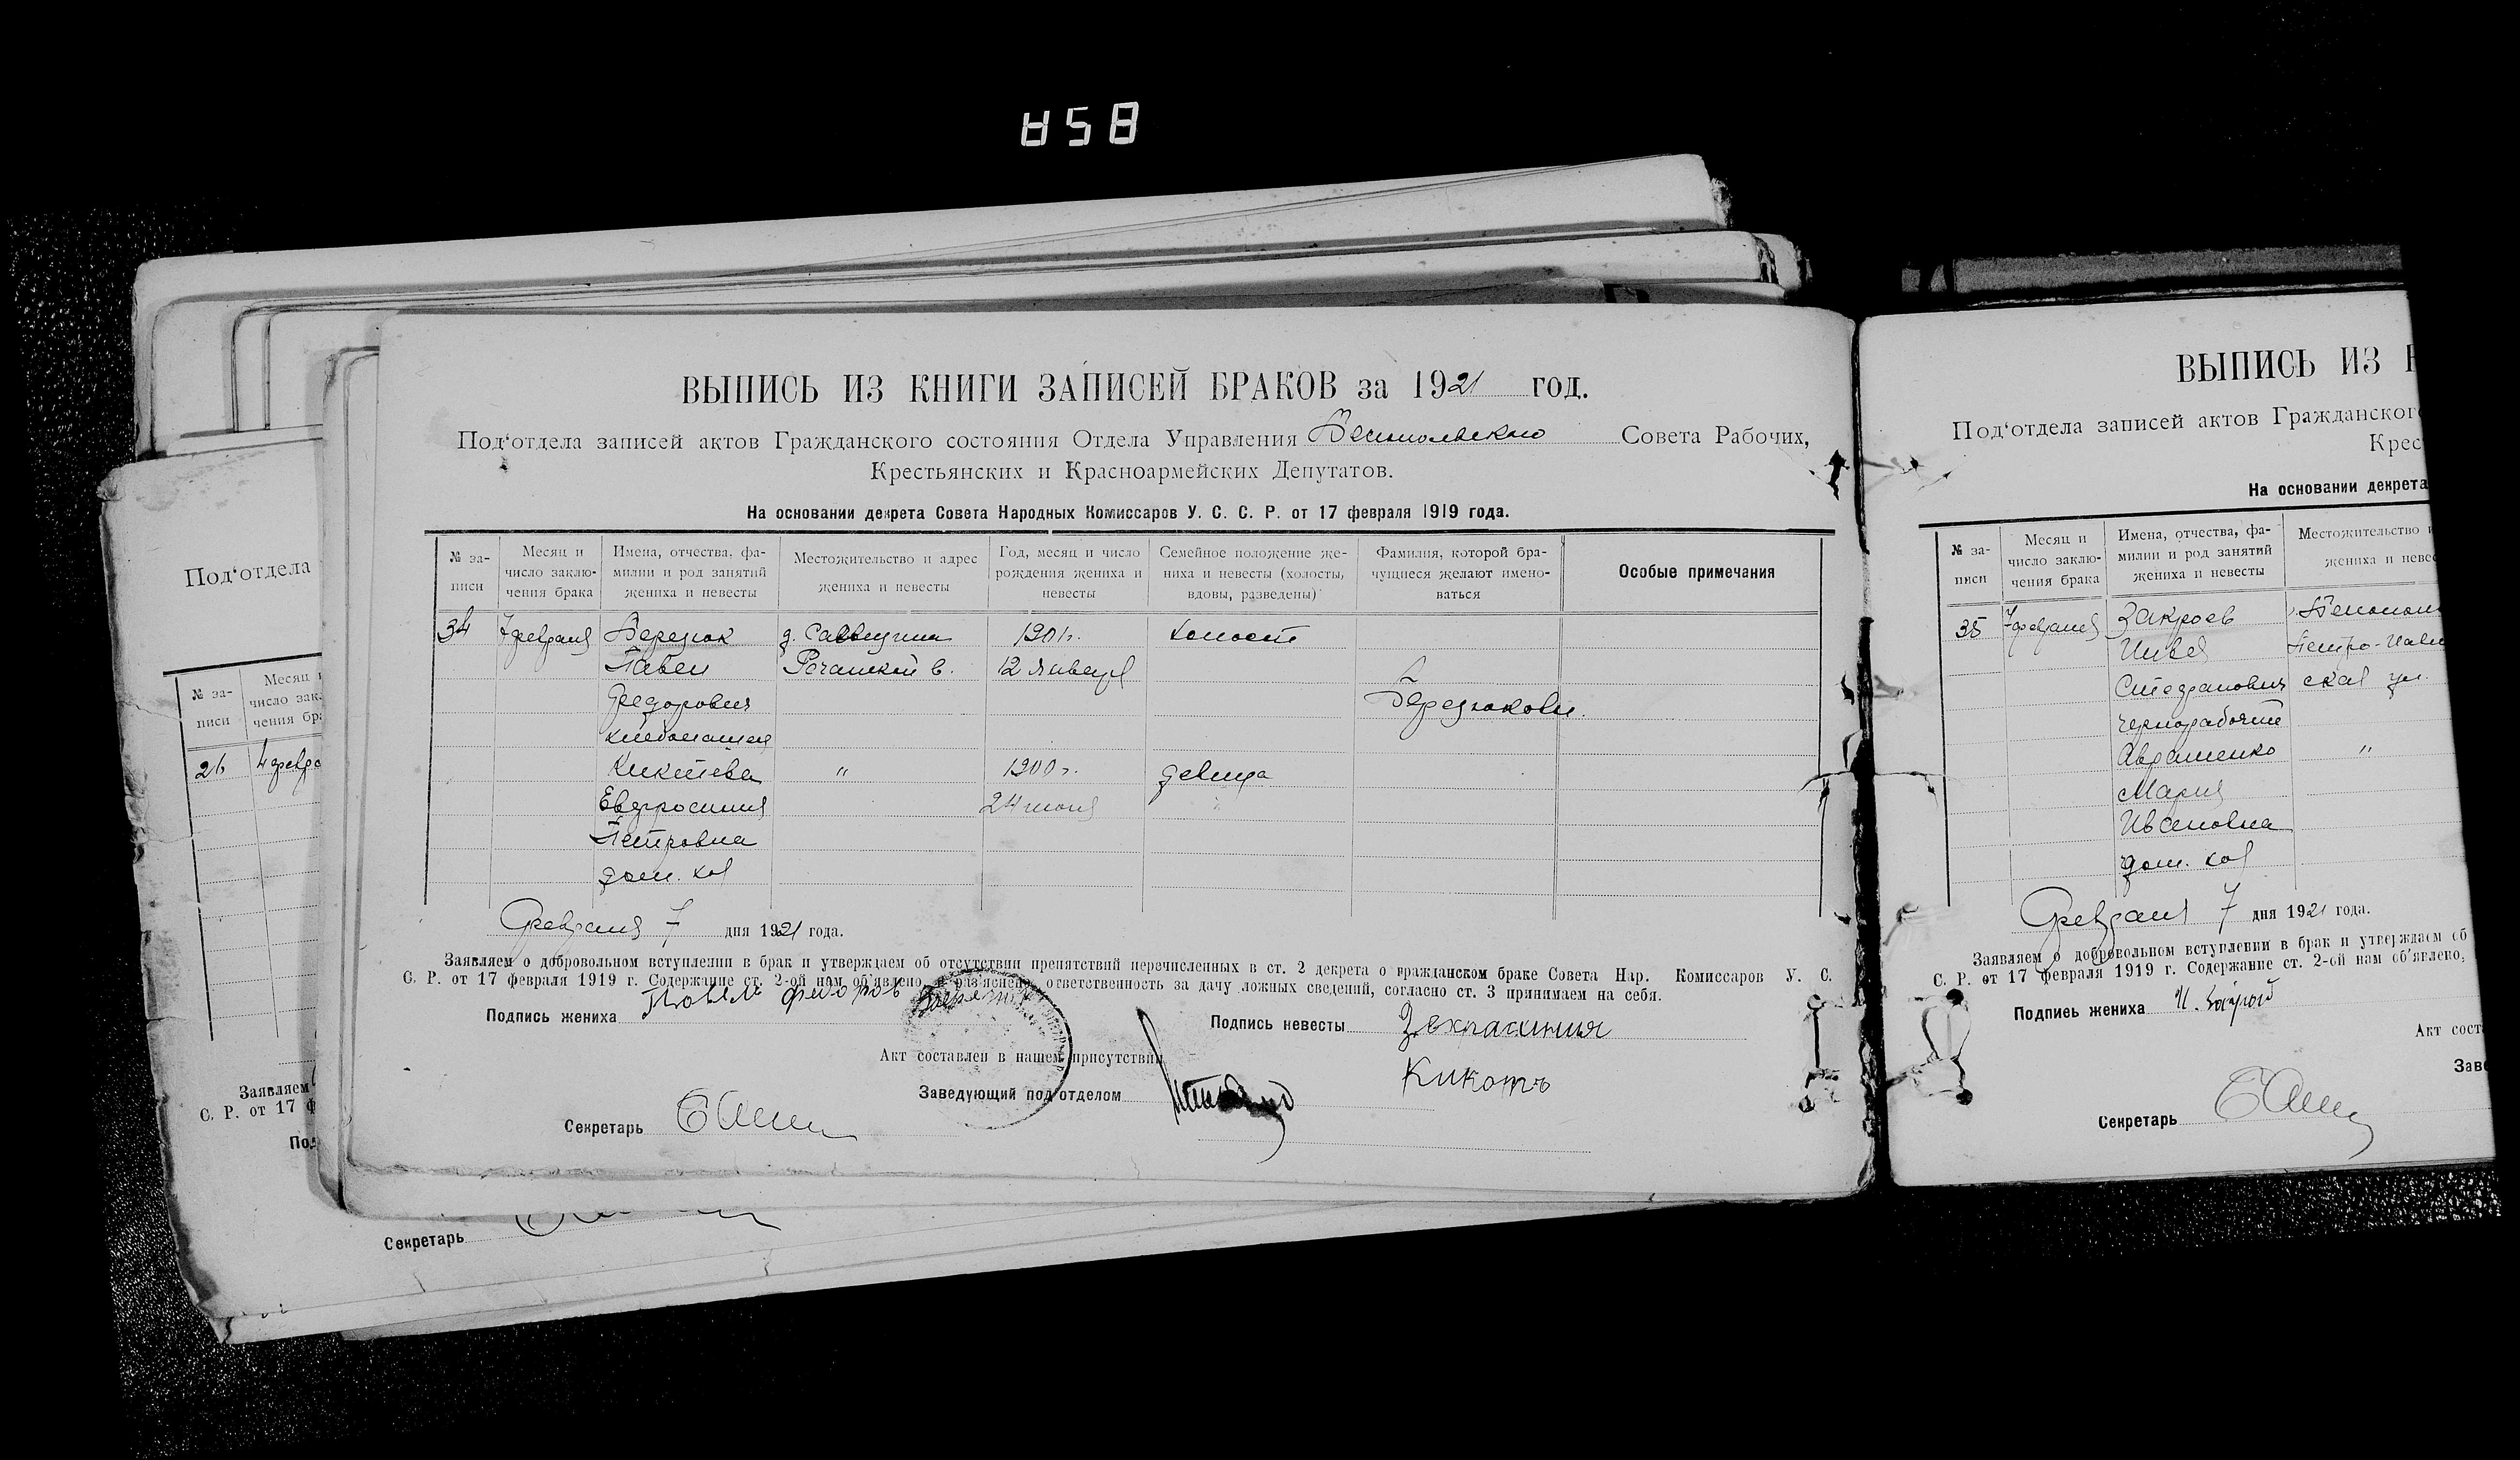 858
ВЫПИСЬ ИЗ КНИГИ ЗАПИСЕЙ БРАКОВ за 1921 год.
Под‘отдела записей актов Гражданского состояния Отдела Управления Совета Рабочих,
Крестьянских и Красноармейских Депутатов.
На основании декрета Совета Народных Комиссаров У. С. С. Р. от 17 февраля 1919 года.
№ за-писи
Месяц и число заклю-чения брака
Имена, отчества, фа-милии и род занятий жениха и невесты
Местожительство и адрес жениха и невесты
Год, месяц и число рождения жениха и невесты
Семейное положение же-ниха и невесты (холосты, вдовы, разведены)
Фамилия, которой бра-чущиеся желают имено-ваться
Особые примечания
34 7 февраля Березюк д. 1901 г. холост
Павел в. 12 января
Федорович Березюковы.
хлебопашец
Кикотева " 1900 г. девица
Евфросиния 24 июня
Петровна
дом. хоз
Февраля 7 дня 1921 года.
Заявляем о добровольном вступлении в брак и утверждаем об отсутствии препятствий перечисленных в ст. 2 декрета о гражданском браке Совета Нар. Комиссаров У. С.
С. Р. от 17 февраля 1919 г. Содержание ст. 2-ой нам об‘явлено, и раз‘яснено, ответственность за дачу ложных сведений, согласно ст. 3 принимаем на себя.
Подпись жениха Федоров
Подпись невесты
Кикоть
Акт составлен в нашем присутствии
Заведующий под‘отделом
Секретарь
ВЫПИСЬ ИЗ
Под‘отдела записей актов Гражданског
Крес
На основании декрета
№ за-писи
Месяц и число заклю-чения брака
Имена, отчества, фа-милии и род занятий жениха и невесты
Местожительство и
жениха и невес
35 7 февраля Закроев
Петро-Павл
Стефанович ская ул.
чернорабочий
Авраменко "
Мария
Ивановна
дом. хоз
Февраля 7 дня 1921 года.
Заявляем о добровольном вступлении в брак и утверждаем об
С. Р. от 17 февраля 1919 г. Содержание ст. 2-ой нам об‘явлено,
Подпись жениха
Акт соста
Заве
Секретарь
Под‘отдела
№ за-писи
Месяц и
число зак
чения бра
26 4 февра
Заявляем
С. Р. от 17 ф
Под
Секретарь